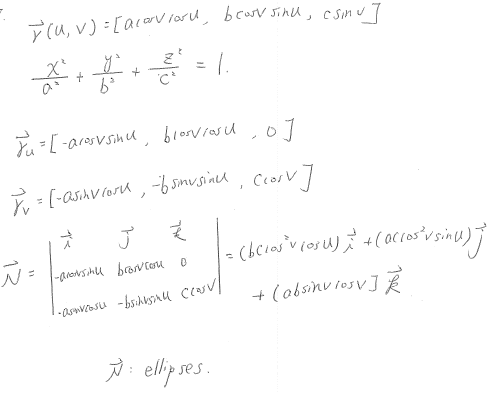 7.
r⃗(u,v) = [acosvcosu, bcosvsinu, csinv]
x²/a² + y²/b² + z²/c² = 1.
r⃗u = [-acosvsinu, bcosvcosu, 0]
r⃗v = [-asinvcosu, -bsinvsinu, ccosv]
N⃗ = | i⃗ j⃗ k⃗ |
| -acosvsinu bcosvcosu 0 |
| -asinvcosu -bsinvsinu ccosv |
= (bccos²vcosu) i⃗ + (accos²vsinu) j⃗
+ (absinvcosv] k⃗
N⃗: ellipses.